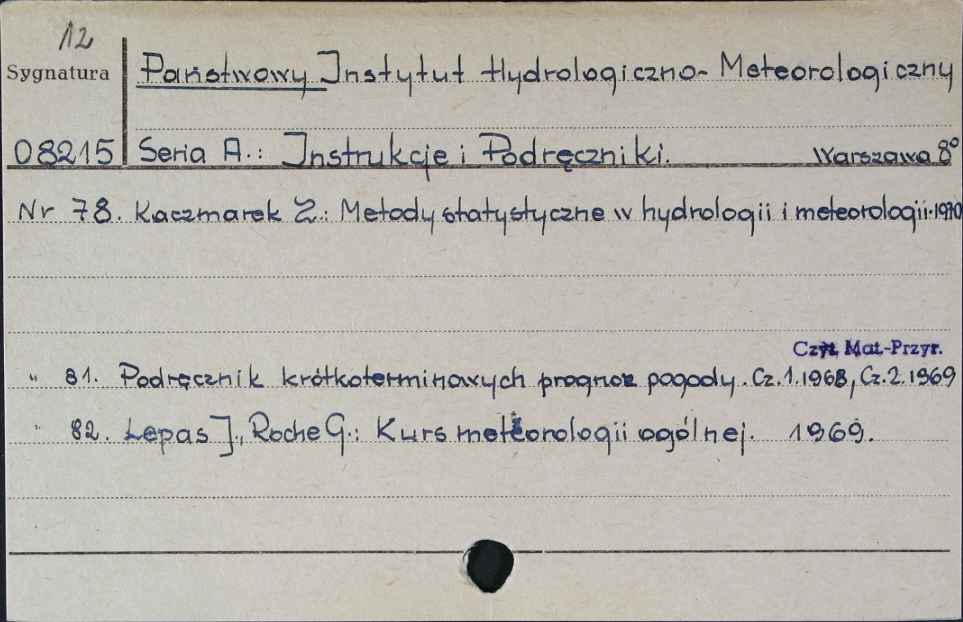 12
Sygnatura
Państwowy Instytut Hydrologiczno-Meteorologiczny
08215 Seria A.: Instrukcje i Podręczniki. Warszawa 8°
Nr 78. Kaczmarek Z.: Metody statystyczne w hydrologii i meteorologii. 1970
Czyt. Mat.-Przyr.
" 81. Podręcznik krótkoterminowych prognoz pogody. Cz.1.1968, Cz.2.1969
" 82. Lepas J., Roche G.: Kurs meteorologii ogólnej. 1969.